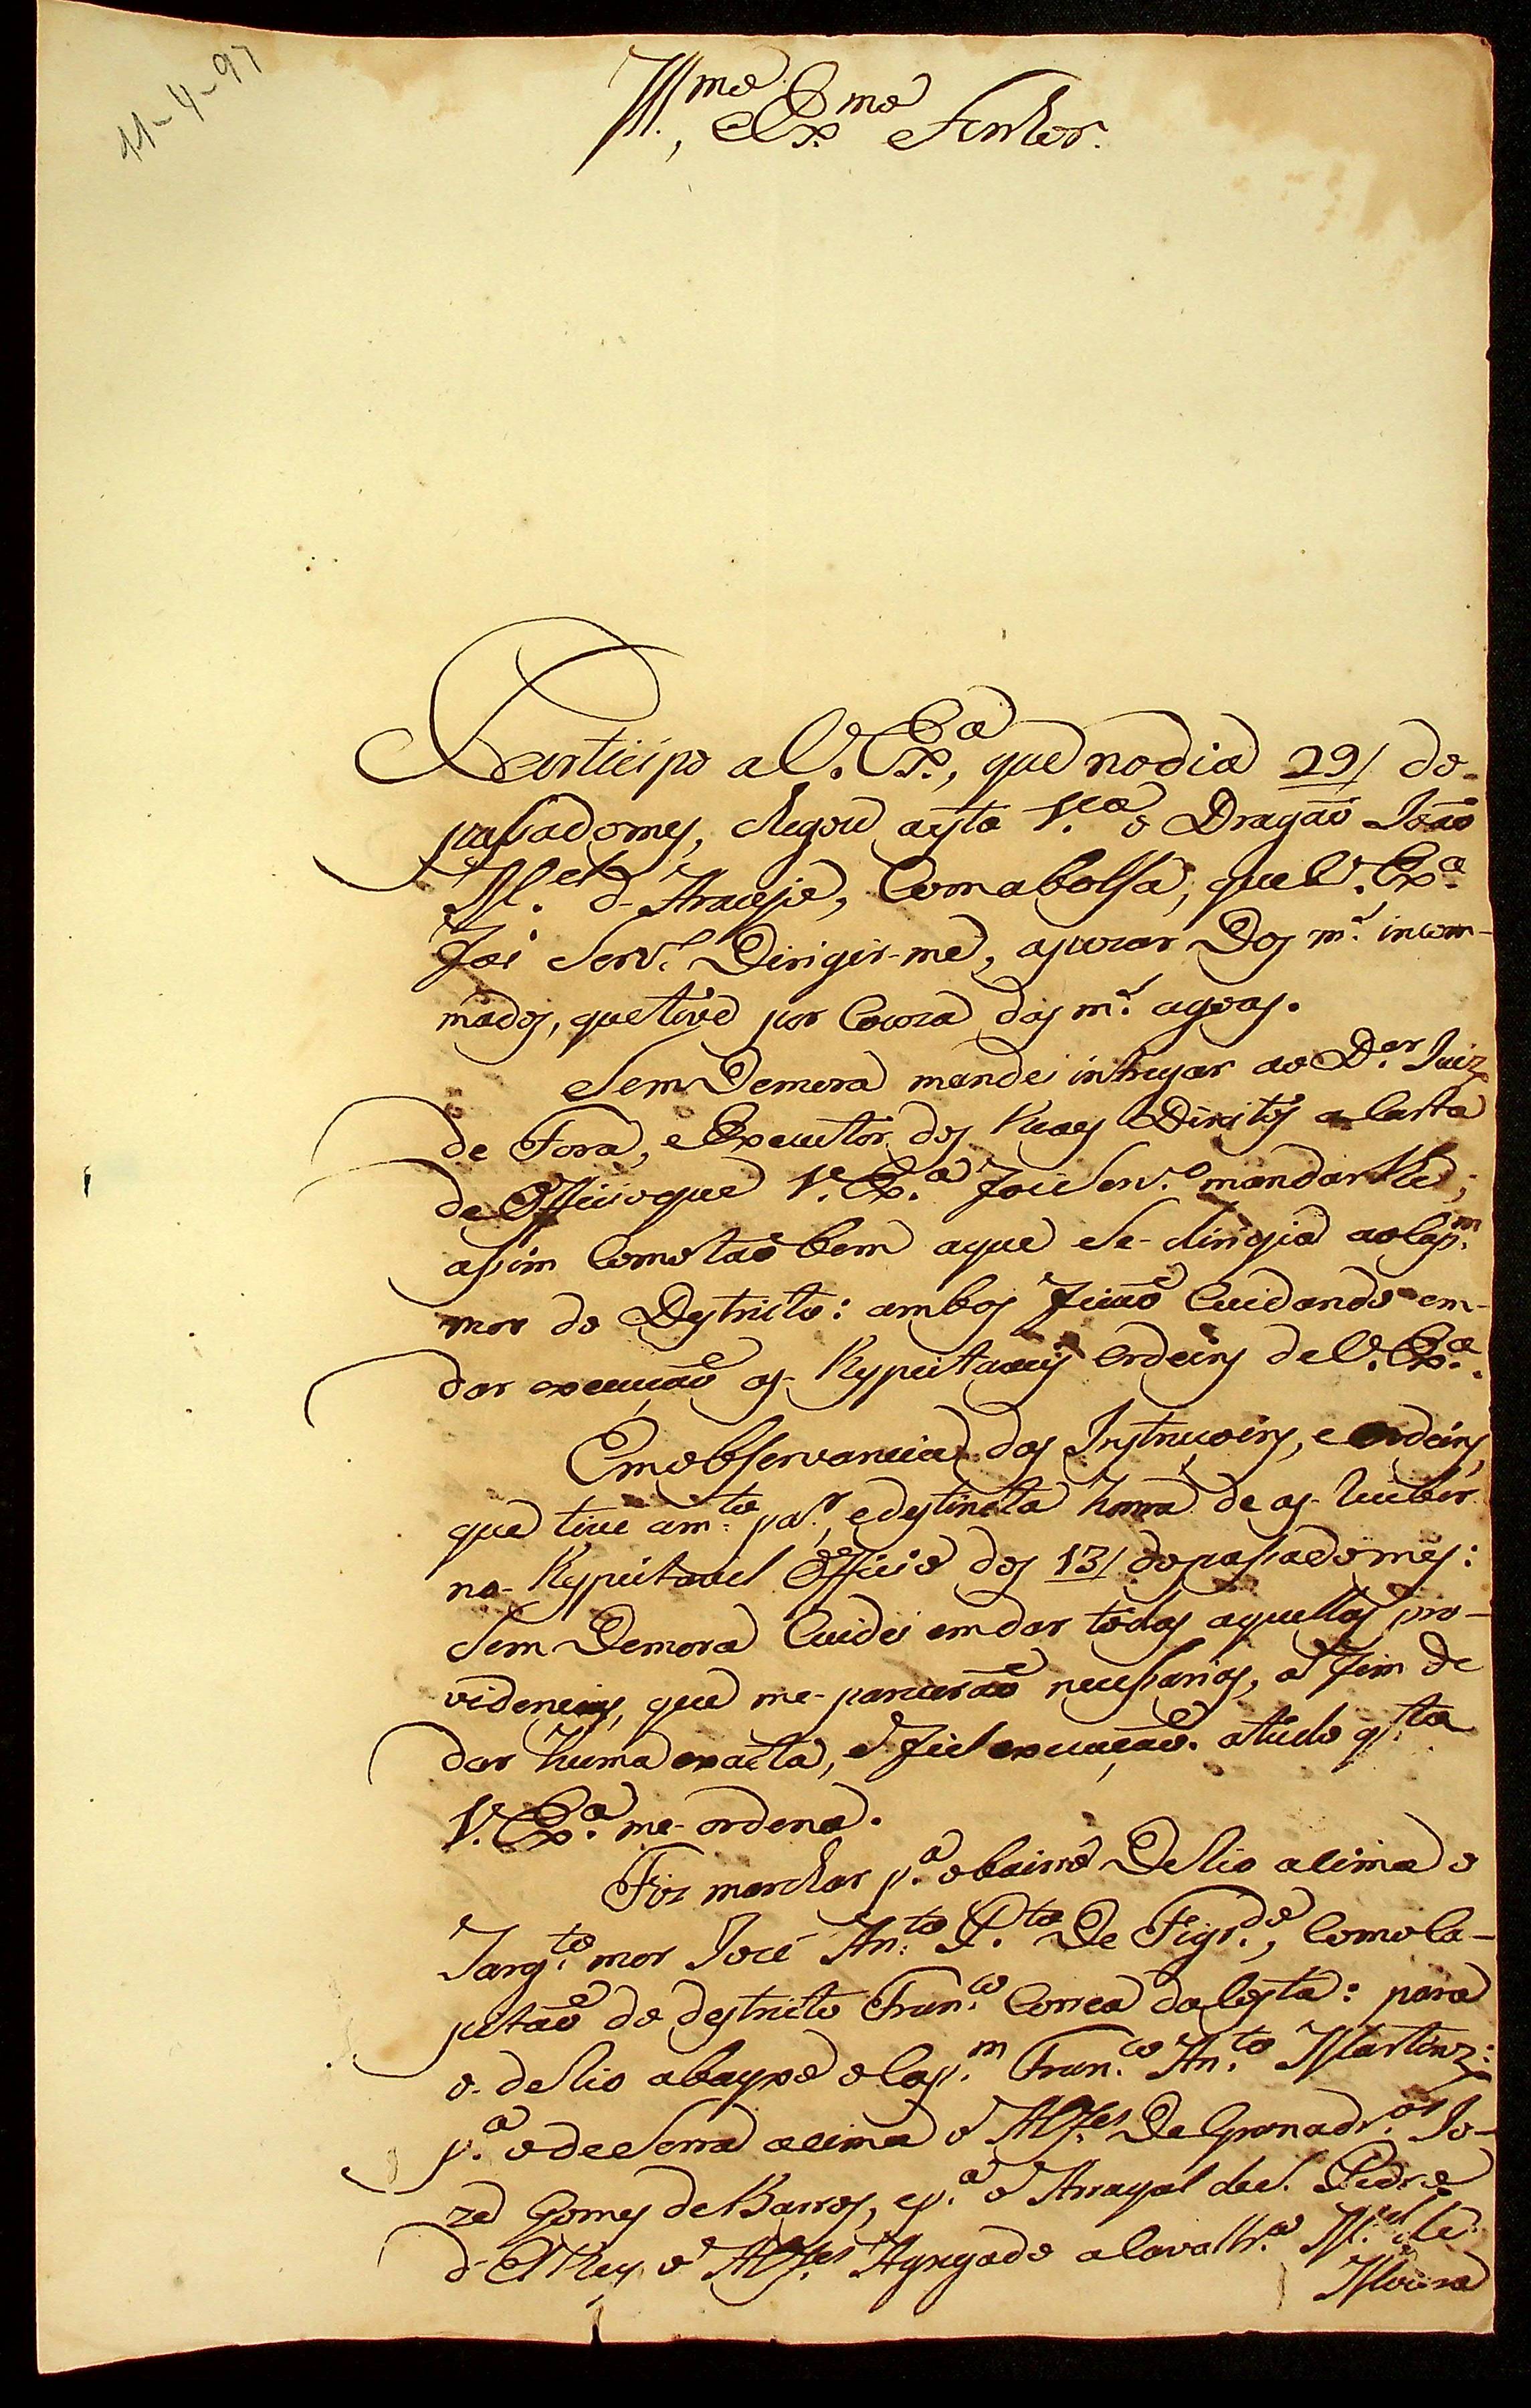 11-4-97
Ill.mo, e Ex.mo Senhor.
Participo a V. Ex.a, que no dia 29/ do-
passado mes, chegou a esta V.a o Dragaõ Joaõ
M.el d'Araujo, Com a bolsa, que V. Ex.a
foi Serv.o Dirigir-me, apezar Dos m.s incom-
madoz, que teve por Couza das m.s agoas.
Sem Demora mandei intregar ao D.or Juiz
de Fora, e Executor dos Reaes Direitos a Carta
de Officio que V. Ex.a foi Serv.o mandar lhe;
assim Como taõ bem aque Se-dirigia ao Cap.m
mor do Destricto: ambos ficaõ Cuidando em-
dar execuçaõ as-Respeitaveis Ordeins de V. Ex.a.
Em observancia das Instruçoins, e Ordeins,
que tive a m.ta par, e destincta honra de as-receber
no-Respeitavel Officio dos 13/ do passado mes:
Sem Demora Cuidei em dar todas aquellas pro-
videncias, que me-pareceraõ necessarias, a fim de
dar huma exacta, e fiel execuçaõ. atudo q.to
V. Ex.a me-ordena.
Fiz marchar p.a o bairro De Rio acima o
Sarg.to mor José An.to P.to De Figr.do, Com o Ca-
pitaõ do destricto Fran.co Correa da Costa: para
o-de Rio abayxo o Cap.m Fran.co An.to Martinz:
p.a o de Serra acima o Alf.es De Granadr.os Jo-
zé Gomes de Barros, e p.a o Arrayal de S. Pedro
d'ElRey o Alf.es Agregado a Cavallr.a M.el de
Moura